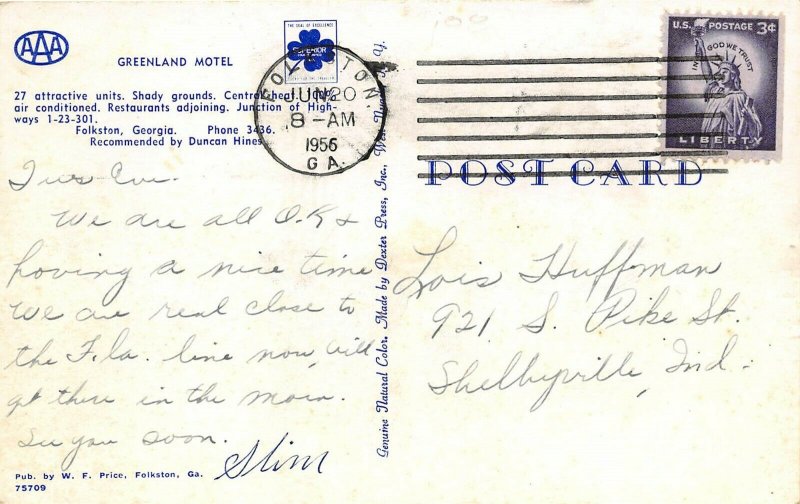 AAA
GREENLAND MOTEL
THE SEAL OF EXCELLENCE
SUPERIOR
27 attractive units. Shady grounds. Central heat. 100%
air conditioned. Restaurants adjoining. Junction of High-
ways 1-23-301.
Folkston, Georgia. Phone 3436.
Recommended by Duncan Hines
FOLKSTON,
JUN 20
8-AM
1956
GA.
U.S. POSTAGE 3¢
IN GOD WE TRUST
LIBERTY
POST CARD
Tues Eve.
We are all O.K &
having a nice time
We are real close to
the Fla. line now, will
get there in the morn.
See you soon.
Slim
Genuine Natural Color. Made by Dexter Press, Inc., West Nyack, N. Y.
Lois Huffman
921 S. Pike St.
Shelbyville, Ind.
Pub. by W. F. Price, Folkston, Ga.
75709